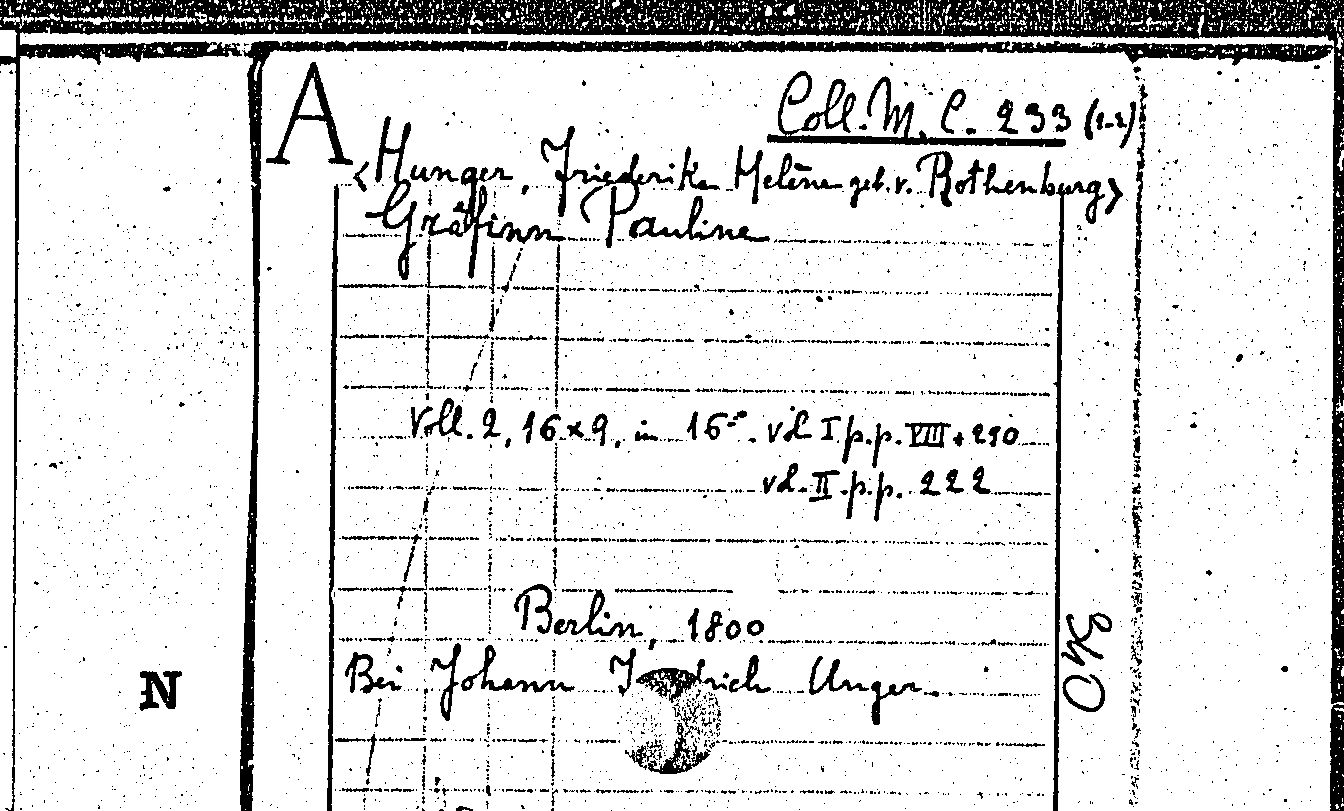 A
Coll. M. C. 233 (1-2)
<Hunger, Friederike Helene geb. v. Rothenburg>
Gräfinn Pauline
Voll. 2, 16×9, in 16º. vol. I p.p. VIII + 290
vol. II. p.p. 222
Berlin, 1800
Bei Johann Unger.
N